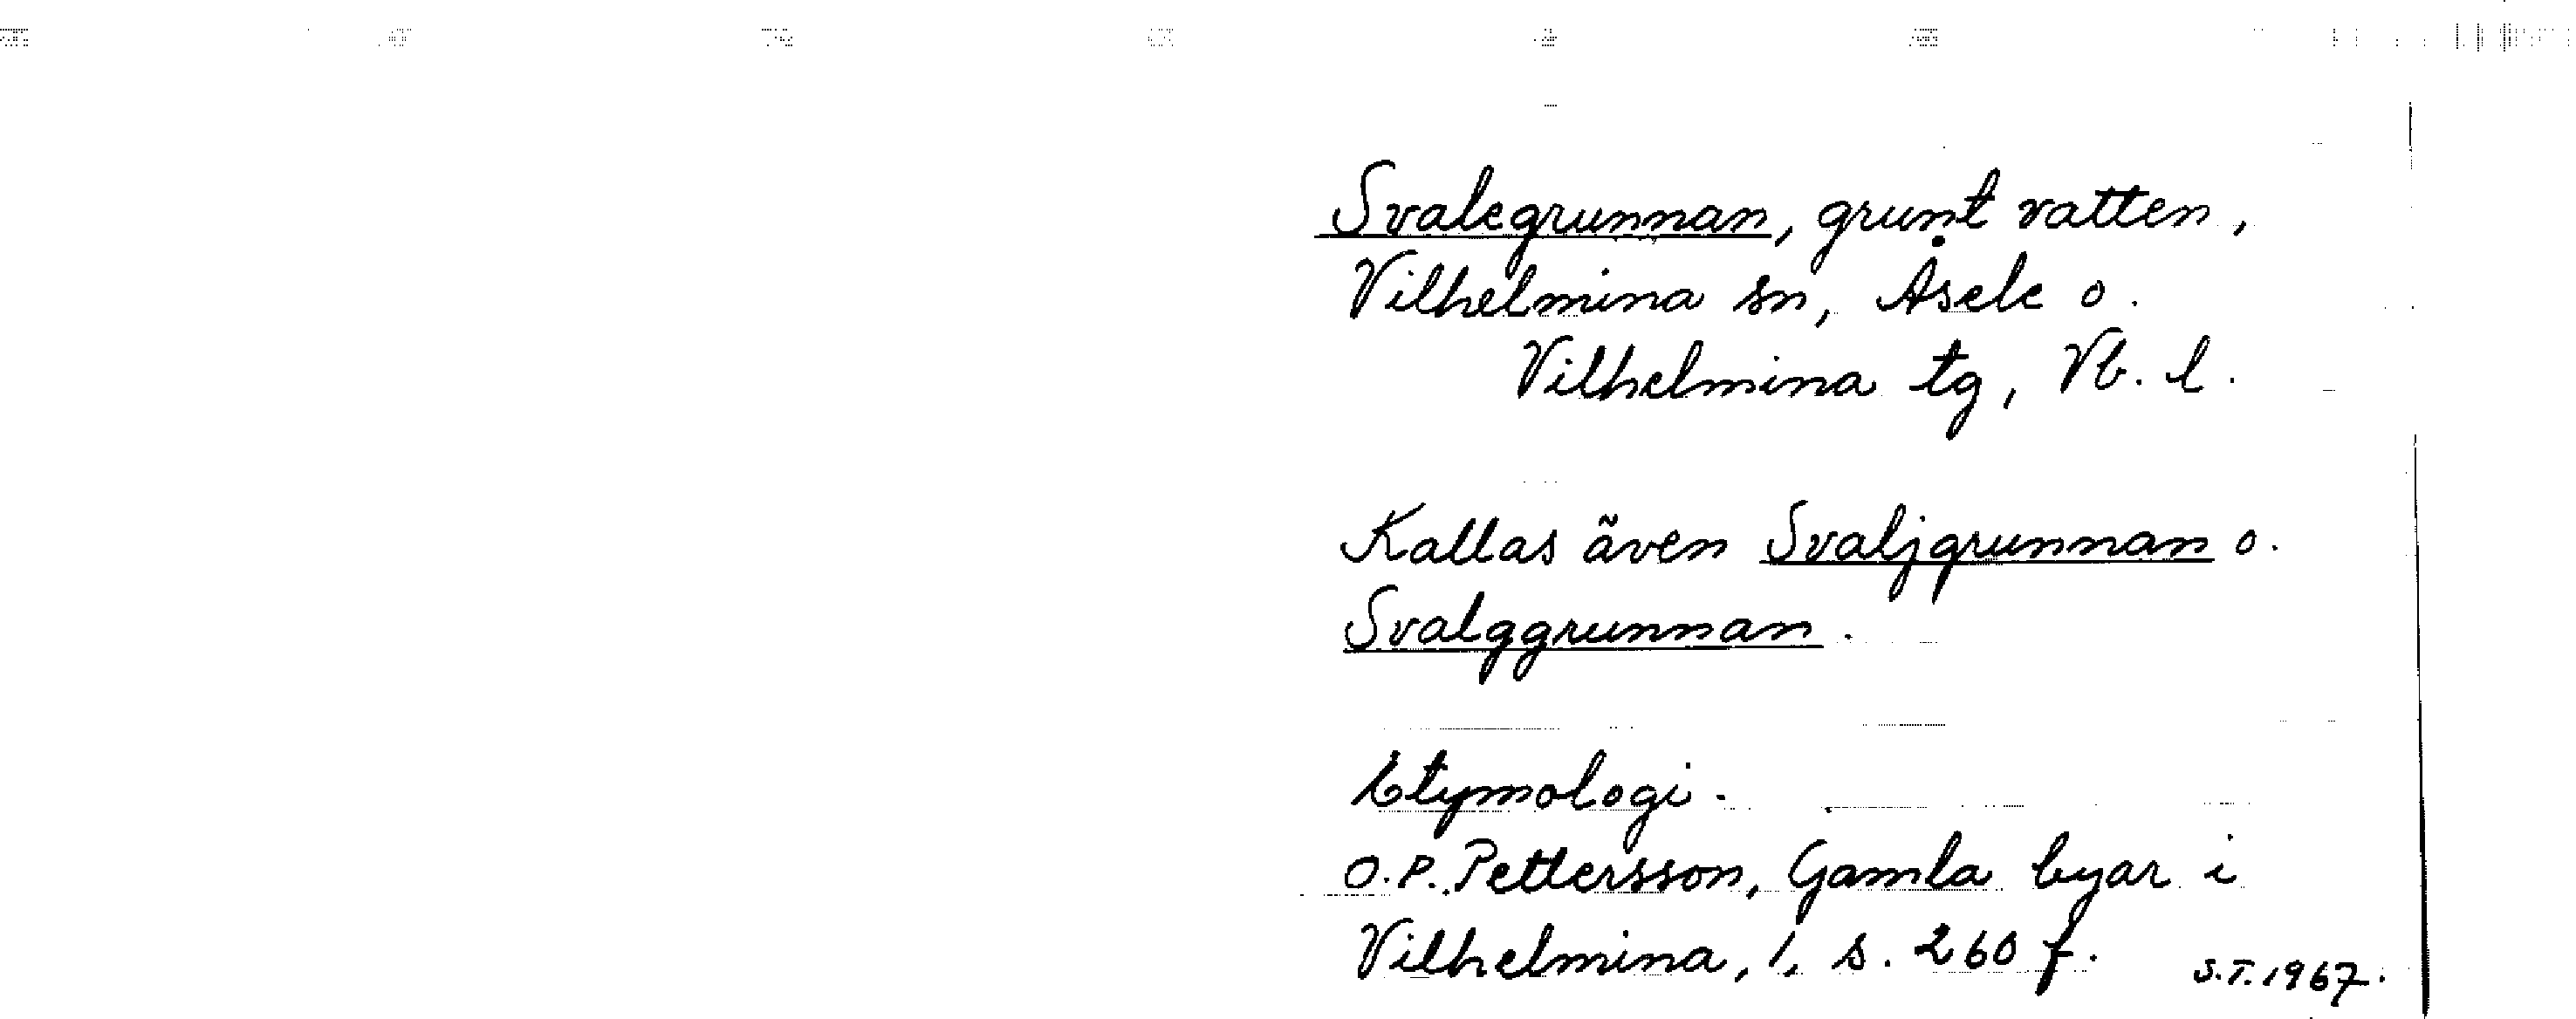 Svalegrunnan, grunt vatten,
Vilhelmina sn, Åsele o.
Vilhelmina tg, Vb. l.
Kallas även Svaljgrunnan o.
Svalggrunnan.
Etymologi.
O.P. Pettersson, Gamla byar i
Vilhelmina, 1, s. 260 f.
S.T. 1967.